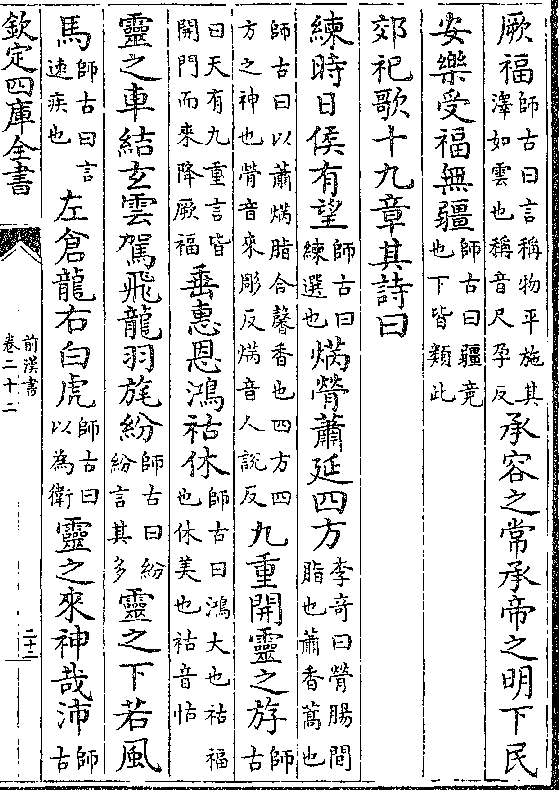 厥福師古曰言稱物平施其澤如雲也稱音尺孕反承容之常承帝之明下民
安樂受福無疆師古曰疆竟也下皆類此
郊祀歌十九章其詩曰
練時日侯有望師古曰練選也焫膋蕭延四方李奇曰膋腸間脂也蕭香蒿也
師古曰以蕭焫脂合馨香也四方四方之神也膋音來彫反焫音人說反九重開靈之斿師古
曰天有九重言皆開門而來降厥福垂惠恩鴻祜休師古曰鴻大也祜福也休美也祜音怙
靈之車結玄雲駕飛龍羽旄紛師古曰紛紛言其多靈之下若風
馬師古曰言速疾也左倉龍右白虎師古曰以為衛靈之來神哉沛師古
欽定四庫全書
前漢書
卷二十二
二十二